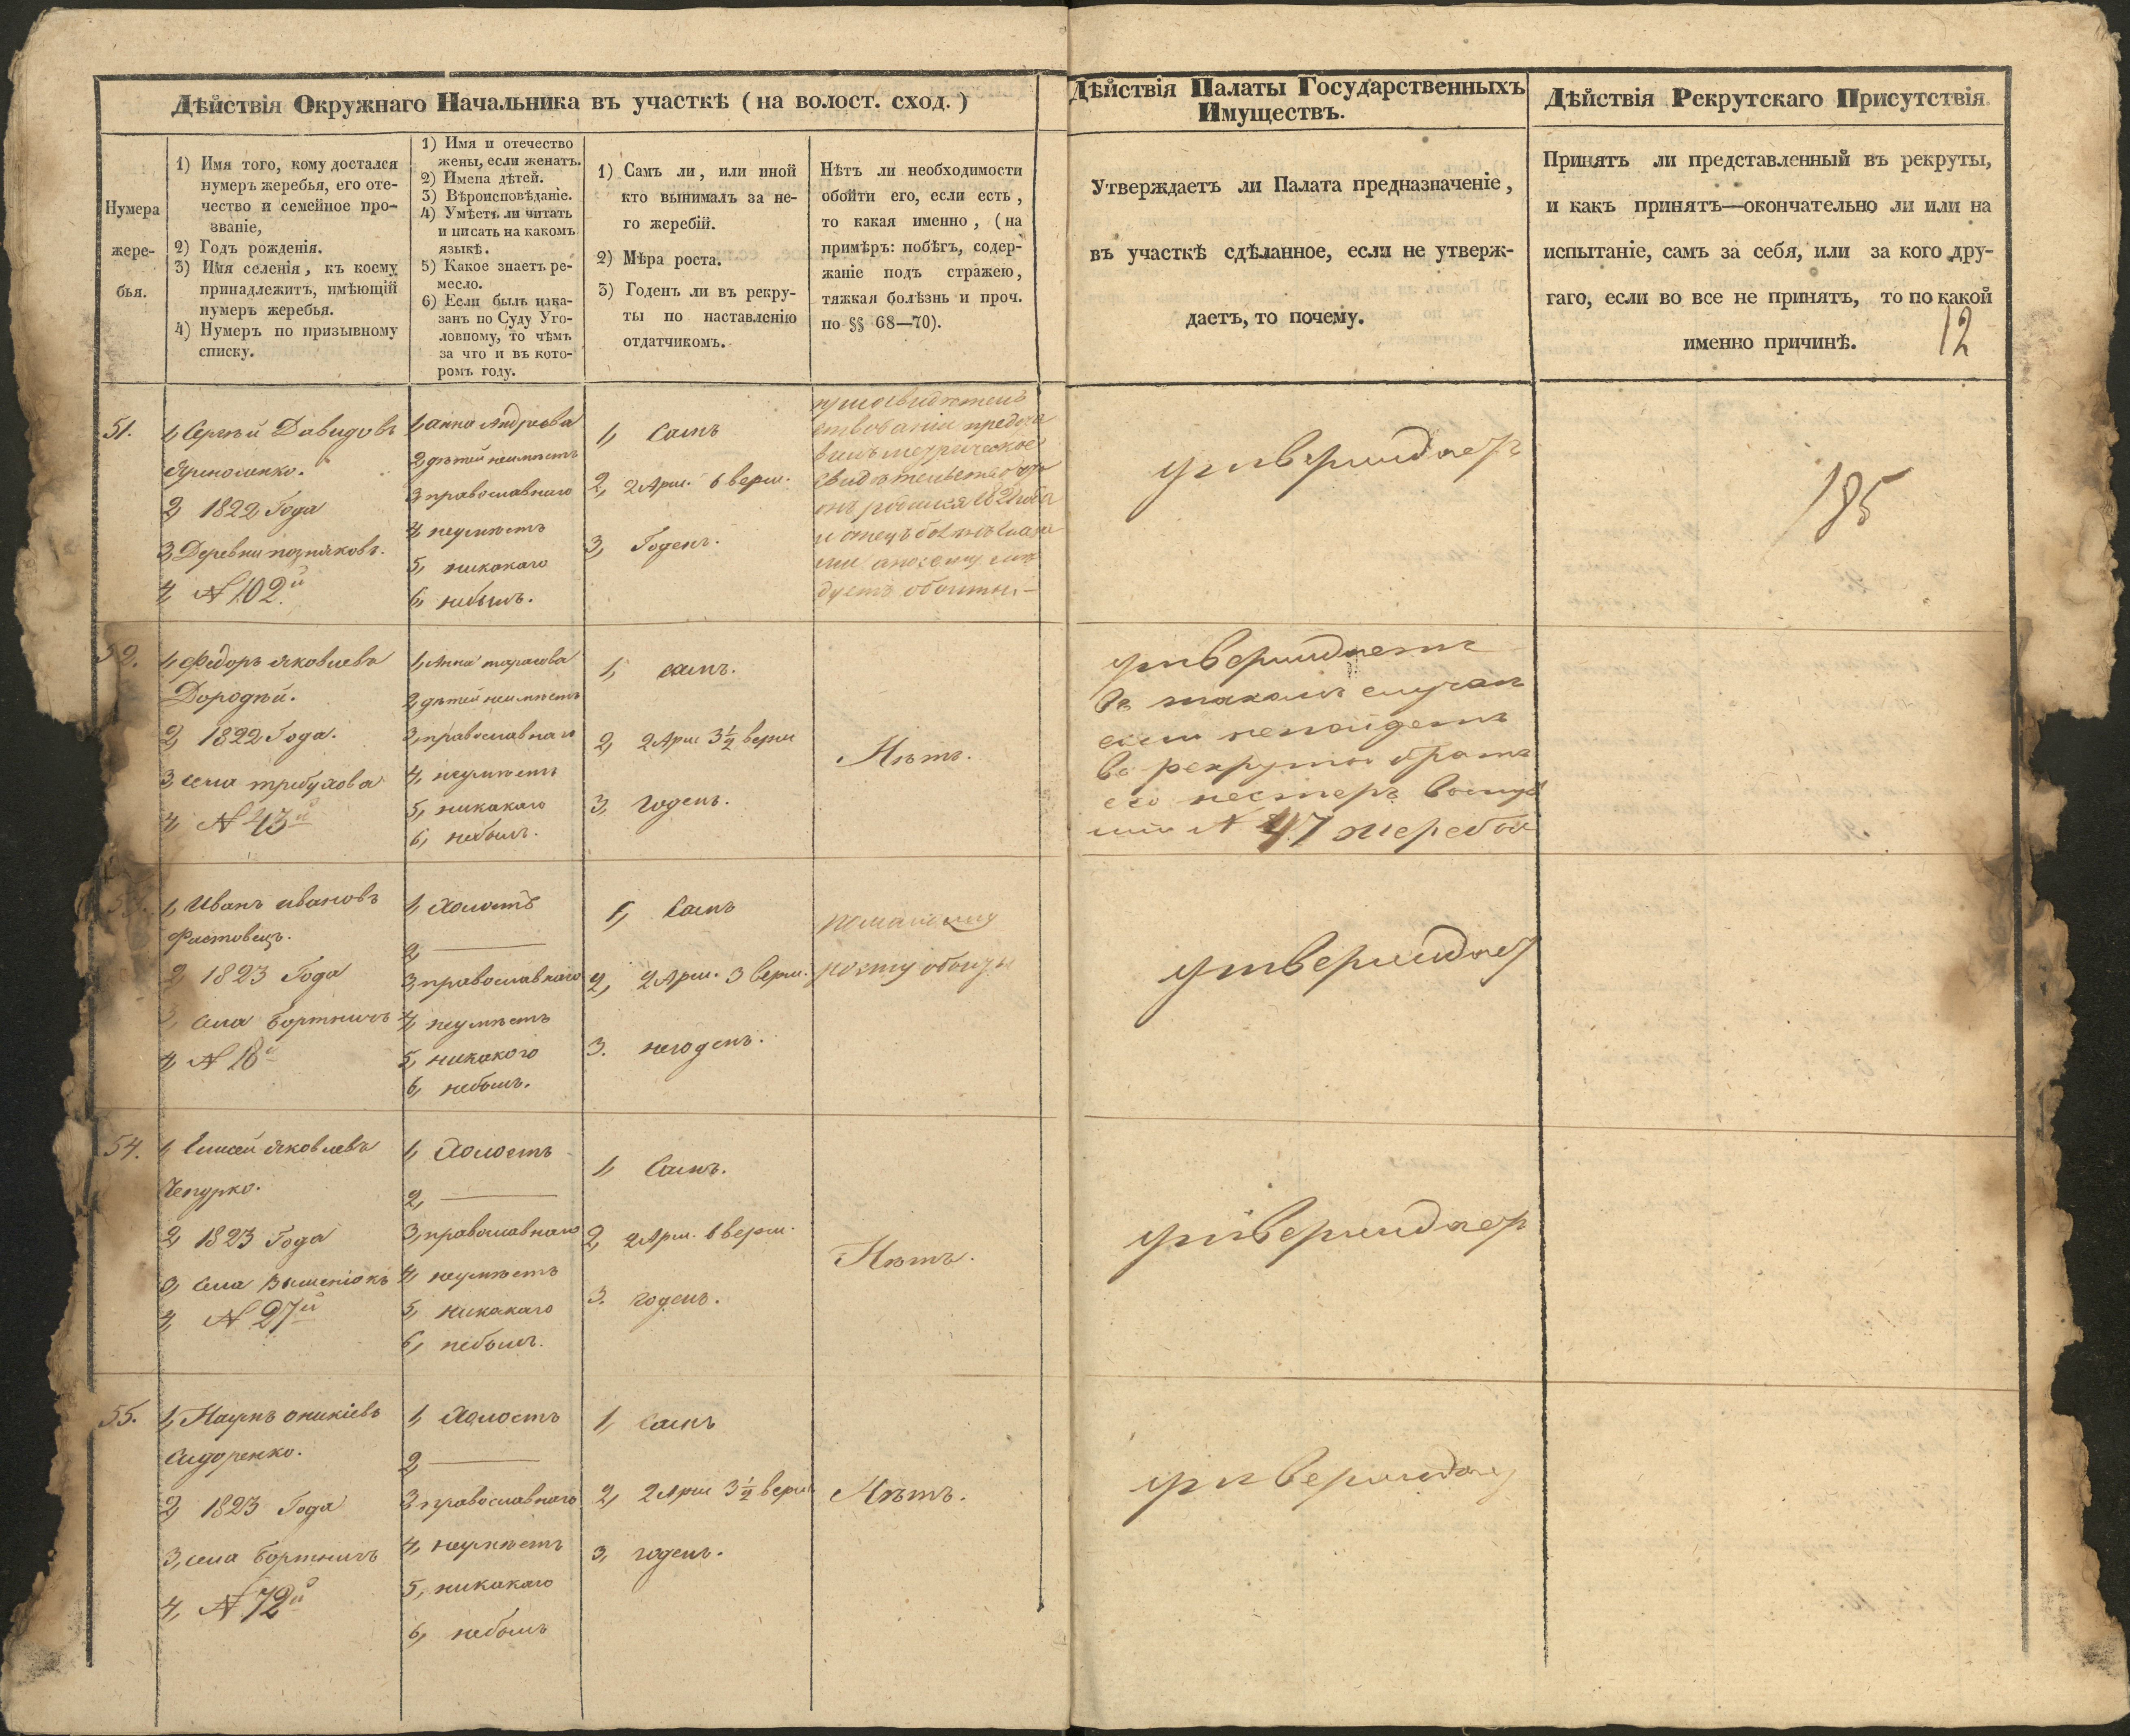 Дѣйствія Окружнаго Начальника въ участкѣ ( на волост. сход. )
Нумера
жере-
бья.
1) Имя того, кому достался
нумеръ жеребья, его оте-
чество и семейное про-
званіе,
2) Годъ рожденія.
3) Имя селенія, къ коему
принадлежитъ, имѣющій
нумеръ жеребья.
4) Нумеръ по призывному
списку.
1) Имя и отечество
жены, если женатъ.
2) Имена дѣтей.
3) Вѣроисповѣданіе.
4) Умѣетъ ли читать
и писать на какомъ
языкѣ.
5) Какое знаетъ ре-
месло.
6) Если былъ нака-
занъ по Суду Уго-
ловному, то чѣмъ
за что и въ кото-
ромъ году.
1) Самъ ли, или иной
кто вынималъ за не-
го жеребій.
2) Мѣра роста.
3) Годенъ ли въ рекру-
ты по наставленію
отдатчикомъ.
Нѣтъ ли необходимости
обойти его, если есть,
то какая именно, (на
примѣръ: побѣгъ, содер-
жаніе подъ стражею,
тяжкая болѣзнь и проч.
по §§ 68—70).
Дѣйствія Палаты Государственныхъ
Имуществъ.
Утверждаетъ ли Палата предназначеніе,
въ участкѣ сдѣланное, если не утверж-
даетъ, то почему.
Дѣйствія Рекрутскаго Присутствія.
Принятъ ли представленный въ рекруты,
и какъ принятъ—окончательно ли или на
испытаніе, самъ за себя, или за кого дру-
гаго, если во все не принятъ, то по какой
именно причинѣ.
12
51.
1, Сергѣй Давидовъ
2, 1822 Года
3, Деревни позняковъ.
4, N 102.й
1, анна Андреева
2, дѣтей неимѣетъ
3, православнаго
4, неумѣетъ
5, никакаго
6, небылъ.
1, Самъ
2, 2 Арш. 6 верш.
3, Годенъ.
утверждаетъ
185
52.
1, Федоръ яковлевъ
Дородній.
2, 1822 Года.
3, села требухова
4, N 43й
1, Анна тарасова
2, дѣтей неимѣетъ
3, православнаго
4, неумѣетъ
5, никакаго
6, небылъ.
1, самъ.
2, 2 Арш 3½ верш
3, годенъ.
Нѣтъ.
утверждаетъ
въ такомъ случаѣ
если непойдетъ
въ рекруты братъ
его нестеръ
N 47 жеребья
53.
1, Иванъ ивановъ
Фастовецъ.
2, 1823 Года
3, села бортничъ
4, N 18й
1, Холостъ
2,
3, православнаго
4, неумѣетъ
5, никакого
6, небылъ.
1, Самъ
2, 2 Арш. 3 верш.
3. негоденъ.
утверждает
54.
1, Елисей яковлевъ
Чепурко.
2, 1823 Года
3, села Вишенокъ
4, N 27й
1, Холостъ
2,
3, православнаго
4, неумѣетъ
5, никакаго
6, небылъ.
1, Самъ.
2, 2 Арш. 6 верш.
3. годенъ.
Нѣтъ.
утверждает
55.
1, Наумъ оникіевъ
Сидоренко.
2, 1823 Года
3, села бортничъ
4, N 72й
1, Холостъ
2
3, православнаго
4, неумѣетъ
5, никакаго
6, небылъ
1, Самъ
2, 2 Арш 3½ верш
3, годенъ.
Нѣтъ.
утверждает